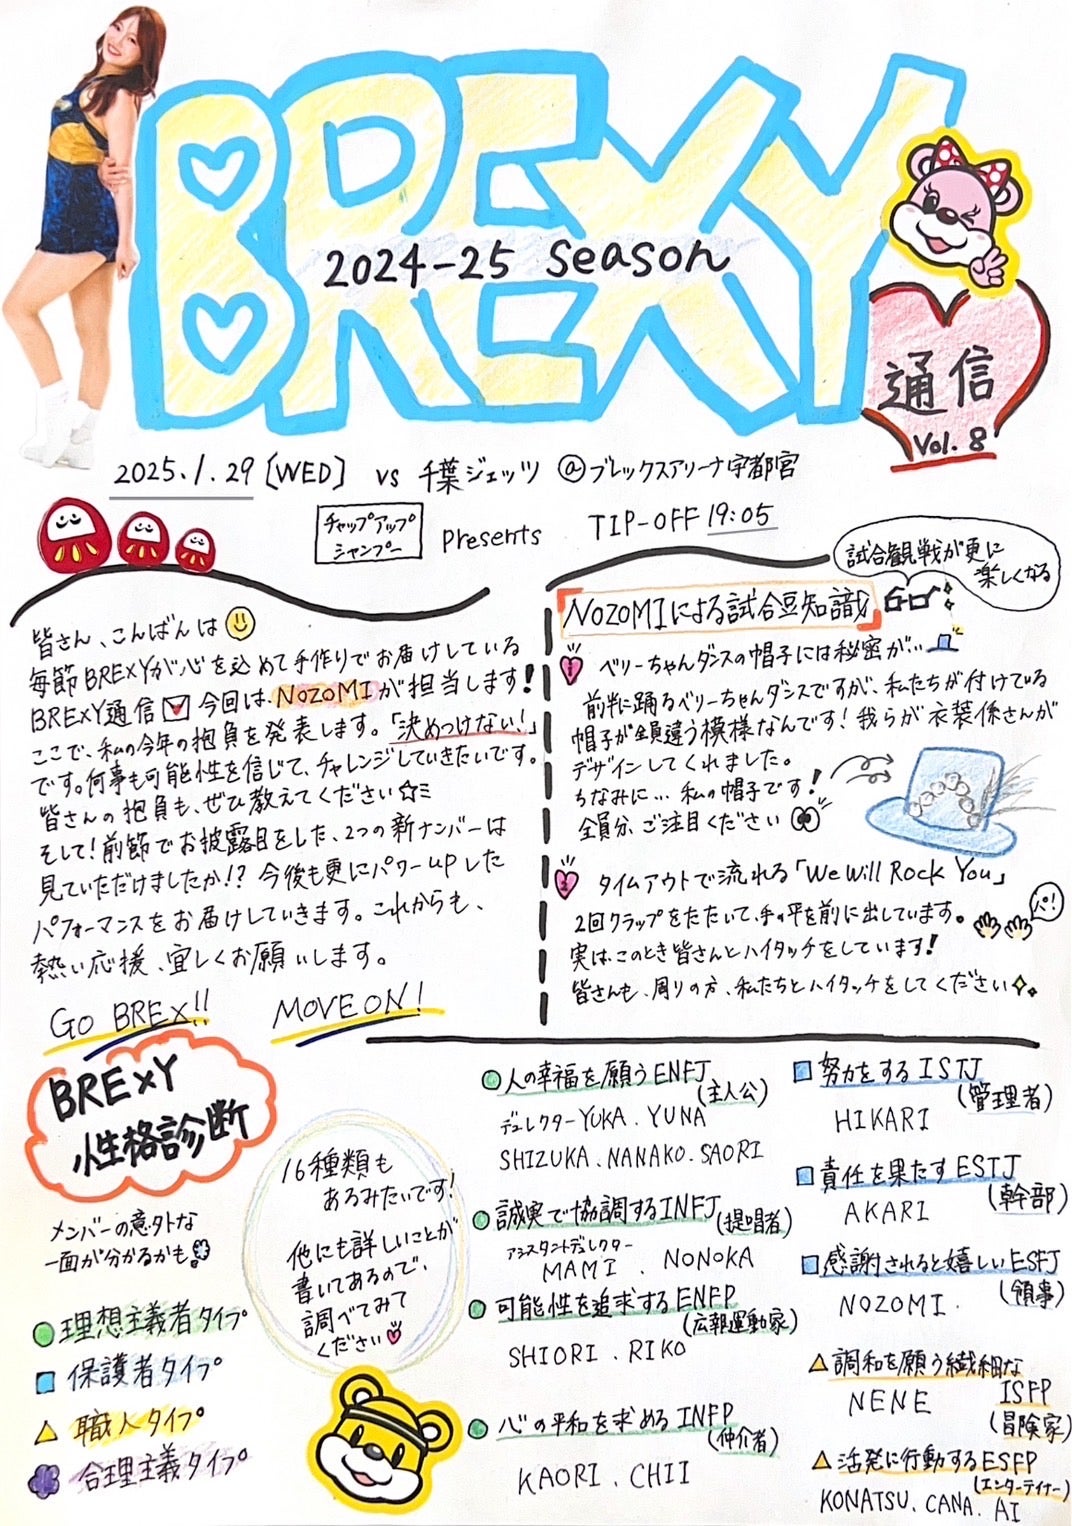 BREXY
2024-25 season
通信
Vol. 8
2025.1.29〔WED〕 vs 千葉ジェッツ @ブレックスアリーナ宇都宮
チャップアップ
シャンプー
presents TIP-OFF 19:05
皆さん、こんばんは
毎節BREXYが心を込めて手作りでお届けしている
BREXY通信 今回は、NOZOMIが担当します!
ここで、私の今年の抱負を発表します。「決めつけない!」
です。何事も可能性を信じて、チャレンジしていきたいです。
皆さんの抱負も、ぜひ教えてください☆ミ
そして!前節でお披露目をした、2つの新ナンバーは
見ていただけましたか!? 今後も更にパワーupした
パフォーマンスをお届けしていきます。これからも、
熱い応援、宜しくお願いします。
GO BREX!! MOVE ON!
試合観戦が更に
楽しくなる
NOZOMIによる試合豆知識
1 ベリーちゃんダンスの帽子には秘密が…
前半に踊るベリーちゃんダンスですが、私たちが付けている
帽子が全員違う模様なんです! 我らが衣装係さんが
デザインしてくれました。
ちなみに… 私の帽子です!
全員分、ご注目ください
2 タイムアウトで流れる「We Will Rock You」
2回クラップをたたいて、手の平を前に出しています。
パン!
実は、このとき皆さんとハイタッチをしています!
皆さんも、周りの方、私たちとハイタッチをしてください
BREXY
性格診断
メンバーの意外な
一面が分かるかも!
●理想主義者タイプ
■保護者タイプ
▲職人タイプ
合理主義タイプ
16種類も
あるみたいです!
他にも詳しいことが
書いてあるので、
調べてみて
ください
●人の幸福を願うENFJ
(主人公)
ディレクターYUKA. YUNA
SHIZUKA. NANAKO. SAORI
●誠実で協調するINFJ
(提唱者)
アシスタントディレクター
MAMI . NONOKA
●可能性を追求するENFP
(広報運動家)
SHIORI . RIKO
●心の平和を求めるINFP
(仲介者)
KAORI . CHII
■努力をするISTJ
(管理者)
HIKARI
■責任を果たすESTJ
(幹部)
AKARI
■感謝されると嬉しいESFJ
(領事)
NOZOMI.
▲調和を願う繊細な
ISFP
NENE
(冒険家)
▲活発に行動するESFP
(エンターテイナー)
KONATSU. CANA. AI